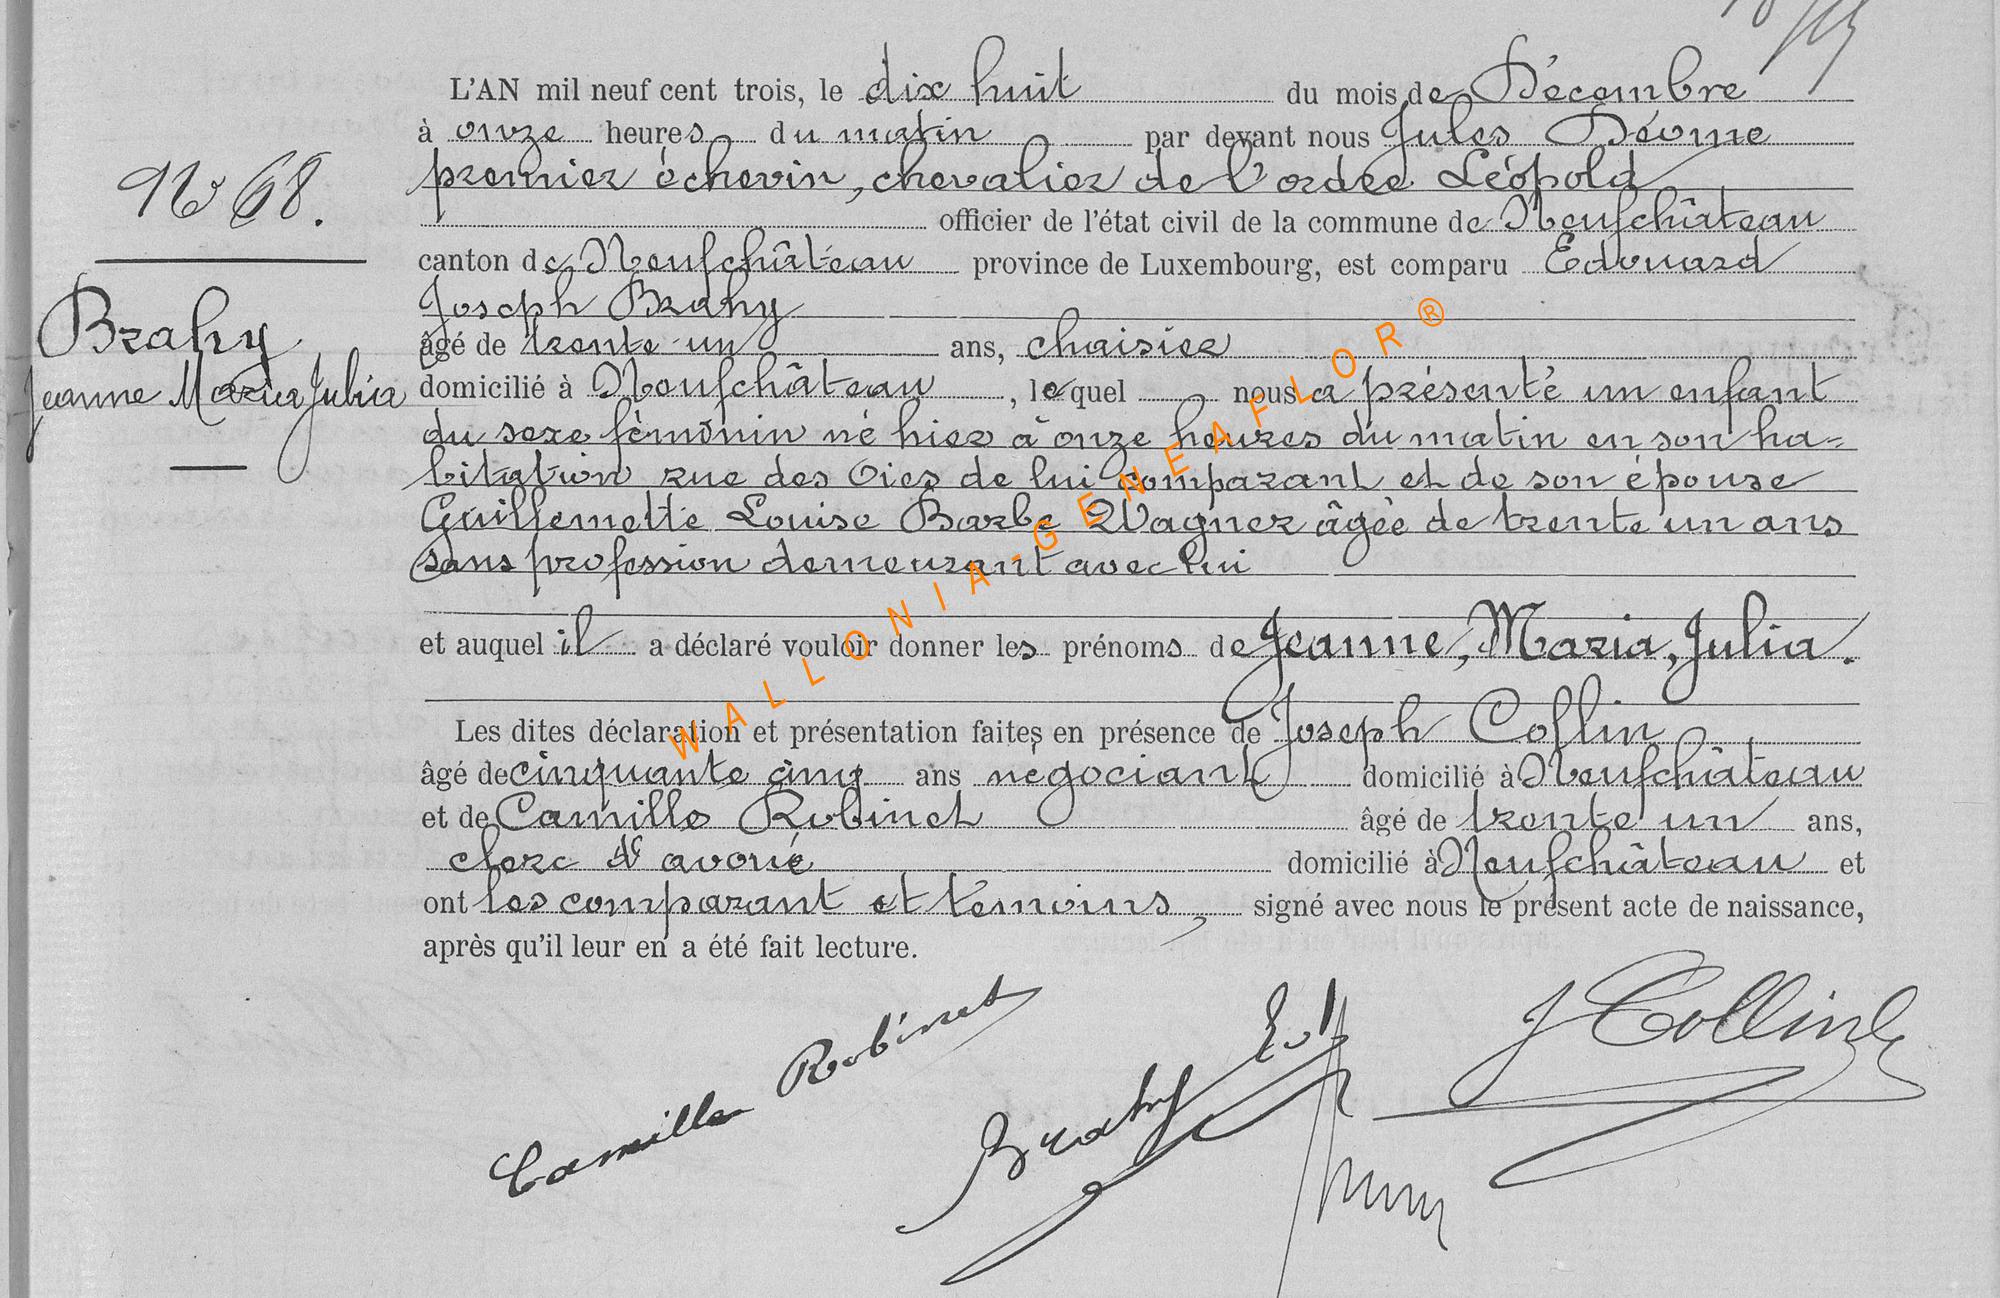 L'AN mil neuf cent trois, le dix huit du mois de Décembre
à onze heures du matin par devant nous Jules Déome
premier échevin, chevalier de l'ordre Léopold
officier de l'état civil de la commune de Neufchâteau
canton de Neufchâteau province de Luxembourg, est comparu Edouard
Joseph Brahy
âgé de trente un ans, chaisier
domicilié à Neufchâteau, lequel nous a présenté un enfant
du sexe féminin né hier à onze heures du matin en son ha=
bitation rue des Oies de lui comparant et de son épouse
Guillemette Louise Barbe Wagner âgée de trente un ans
sans profession demeurant avec lui
et auquel il a déclaré vouloir donner les prénoms de Jeanne, Maria, Julia.
Les dites déclaration et présentation faites en présence de Joseph Collin
âgé de cinquante cinq ans négociant domicilié à Neufchâteau
et de Camille Robinet âgé de trente un ans,
clerc d'avoué domicilié à Neufchâteau et
ont les comparant et témoins, signé avec nous le présent acte de naissance,
après qu'il leur en a été fait lecture.
No 68.
Brahy
Jeanne Maria Julia
Camille Robinet
Brahy Ed
J Collin
WALLONIA-GENEAFLOR®